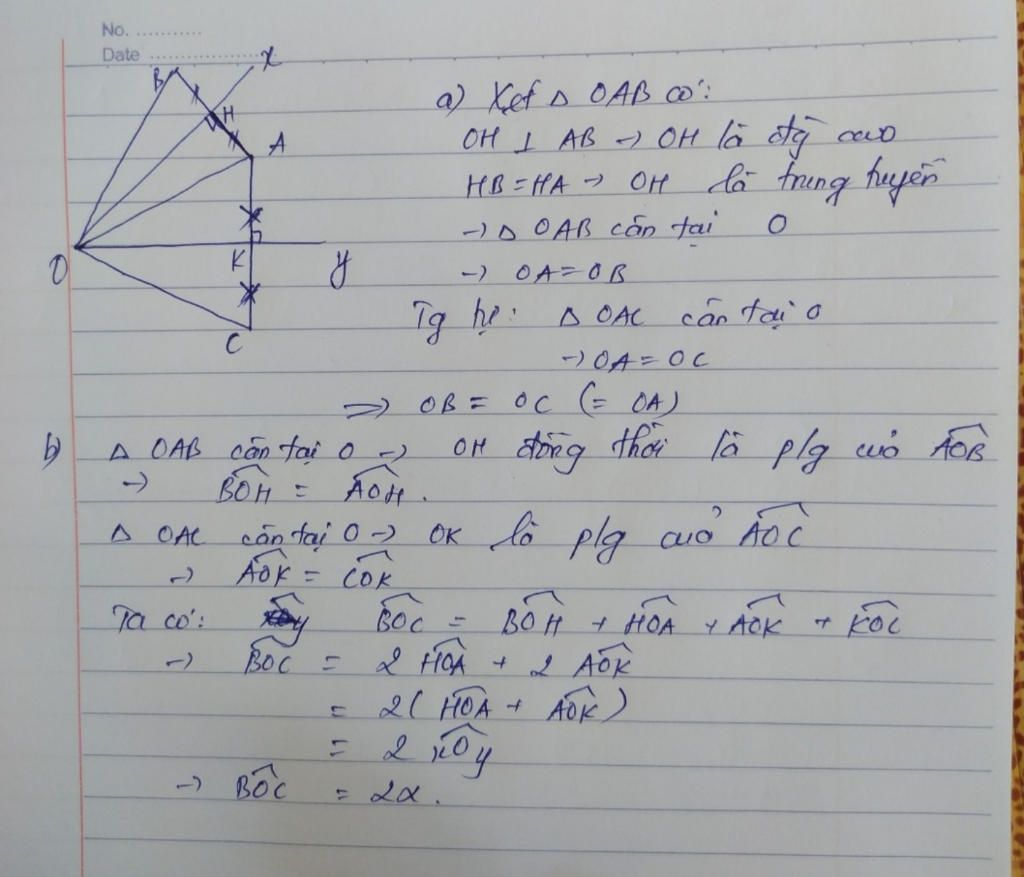 No. ............
Date ........................
B
x
H
A
O
K
y
C
a) Xét △ OAB có:
OH ⊥ AB → OH là đg cao
HB = HA → OH là trung tuyến
→ △ OAB cân tại O
→ OA = OB
Tg tự: △ OAC cân tại O
→ OA = OC
⇒ OB = OC (= OA)
b) △ OAB cân tại O → OH đồng thời là p/g của AOB̂
→ BOĤ = AOĤ.
△ OAC cân tại O → OK là p/g của AOĈ
→ AOK̂ = COK̂
Ta có: BOĈ = BOĤ + HOÂ + AOK̂ + KOĈ
→ BOĈ = 2 HOÂ + 2 AOK̂
= 2( HOÂ + AOK̂ )
= 2 xOŷ
→ BOĈ = 2α.